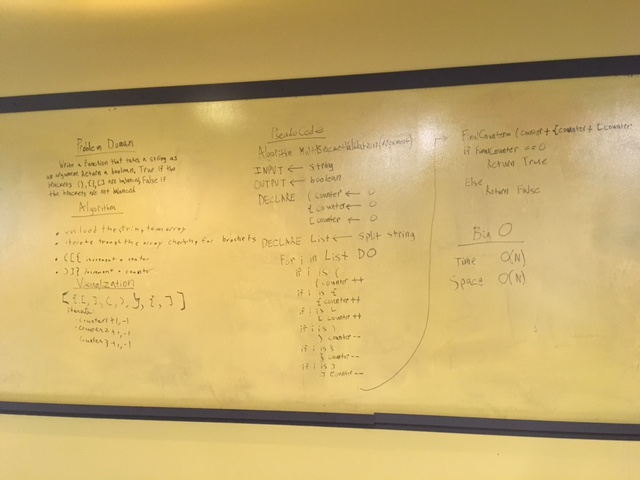 Problem Domain
Write a function that takes a string as
an argument. Return a boolean, True if the
brackets (), {}, [] are balanced, False if
the brackets are not balanced
Algorithm
• unload the string to array
• iterate trough the array checking for brackets
• ( [ { increment + counter
• ) ] } counter
Visualization
iterate:
counter 1 +1, -1
counter 2 +1, -1
counter 3 +1, -1
Pseudo Code
INPUT ← string
OUTPUT ← boolean
DECLARE ( counter ← 0
{ counter ← 0
[ counter ← 0
DECLARE List ← split string
For i in List DO
if i is (
( counter ++
if i is {
{ counter ++
if i is [
[ counter ++
if i is )
) counter --
if i is }
} counter --
if i is ]
] counter --
FinalCounter = (counter + {counter + [counter
if FinalCounter == 0
Return True
Else
Return False
Big O
Time O(N)
Space O(N)